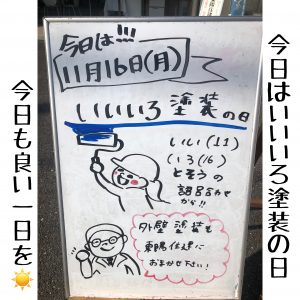 今日はいいいろ塗装の日
今日も良い一日を☀️
今日は!!!
11月16日(月)
いいいろ塗装の日
いい(11)
いろ(16)
とそうの
語呂合わせ
から!!
外壁塗装も
おまかせ下さい!